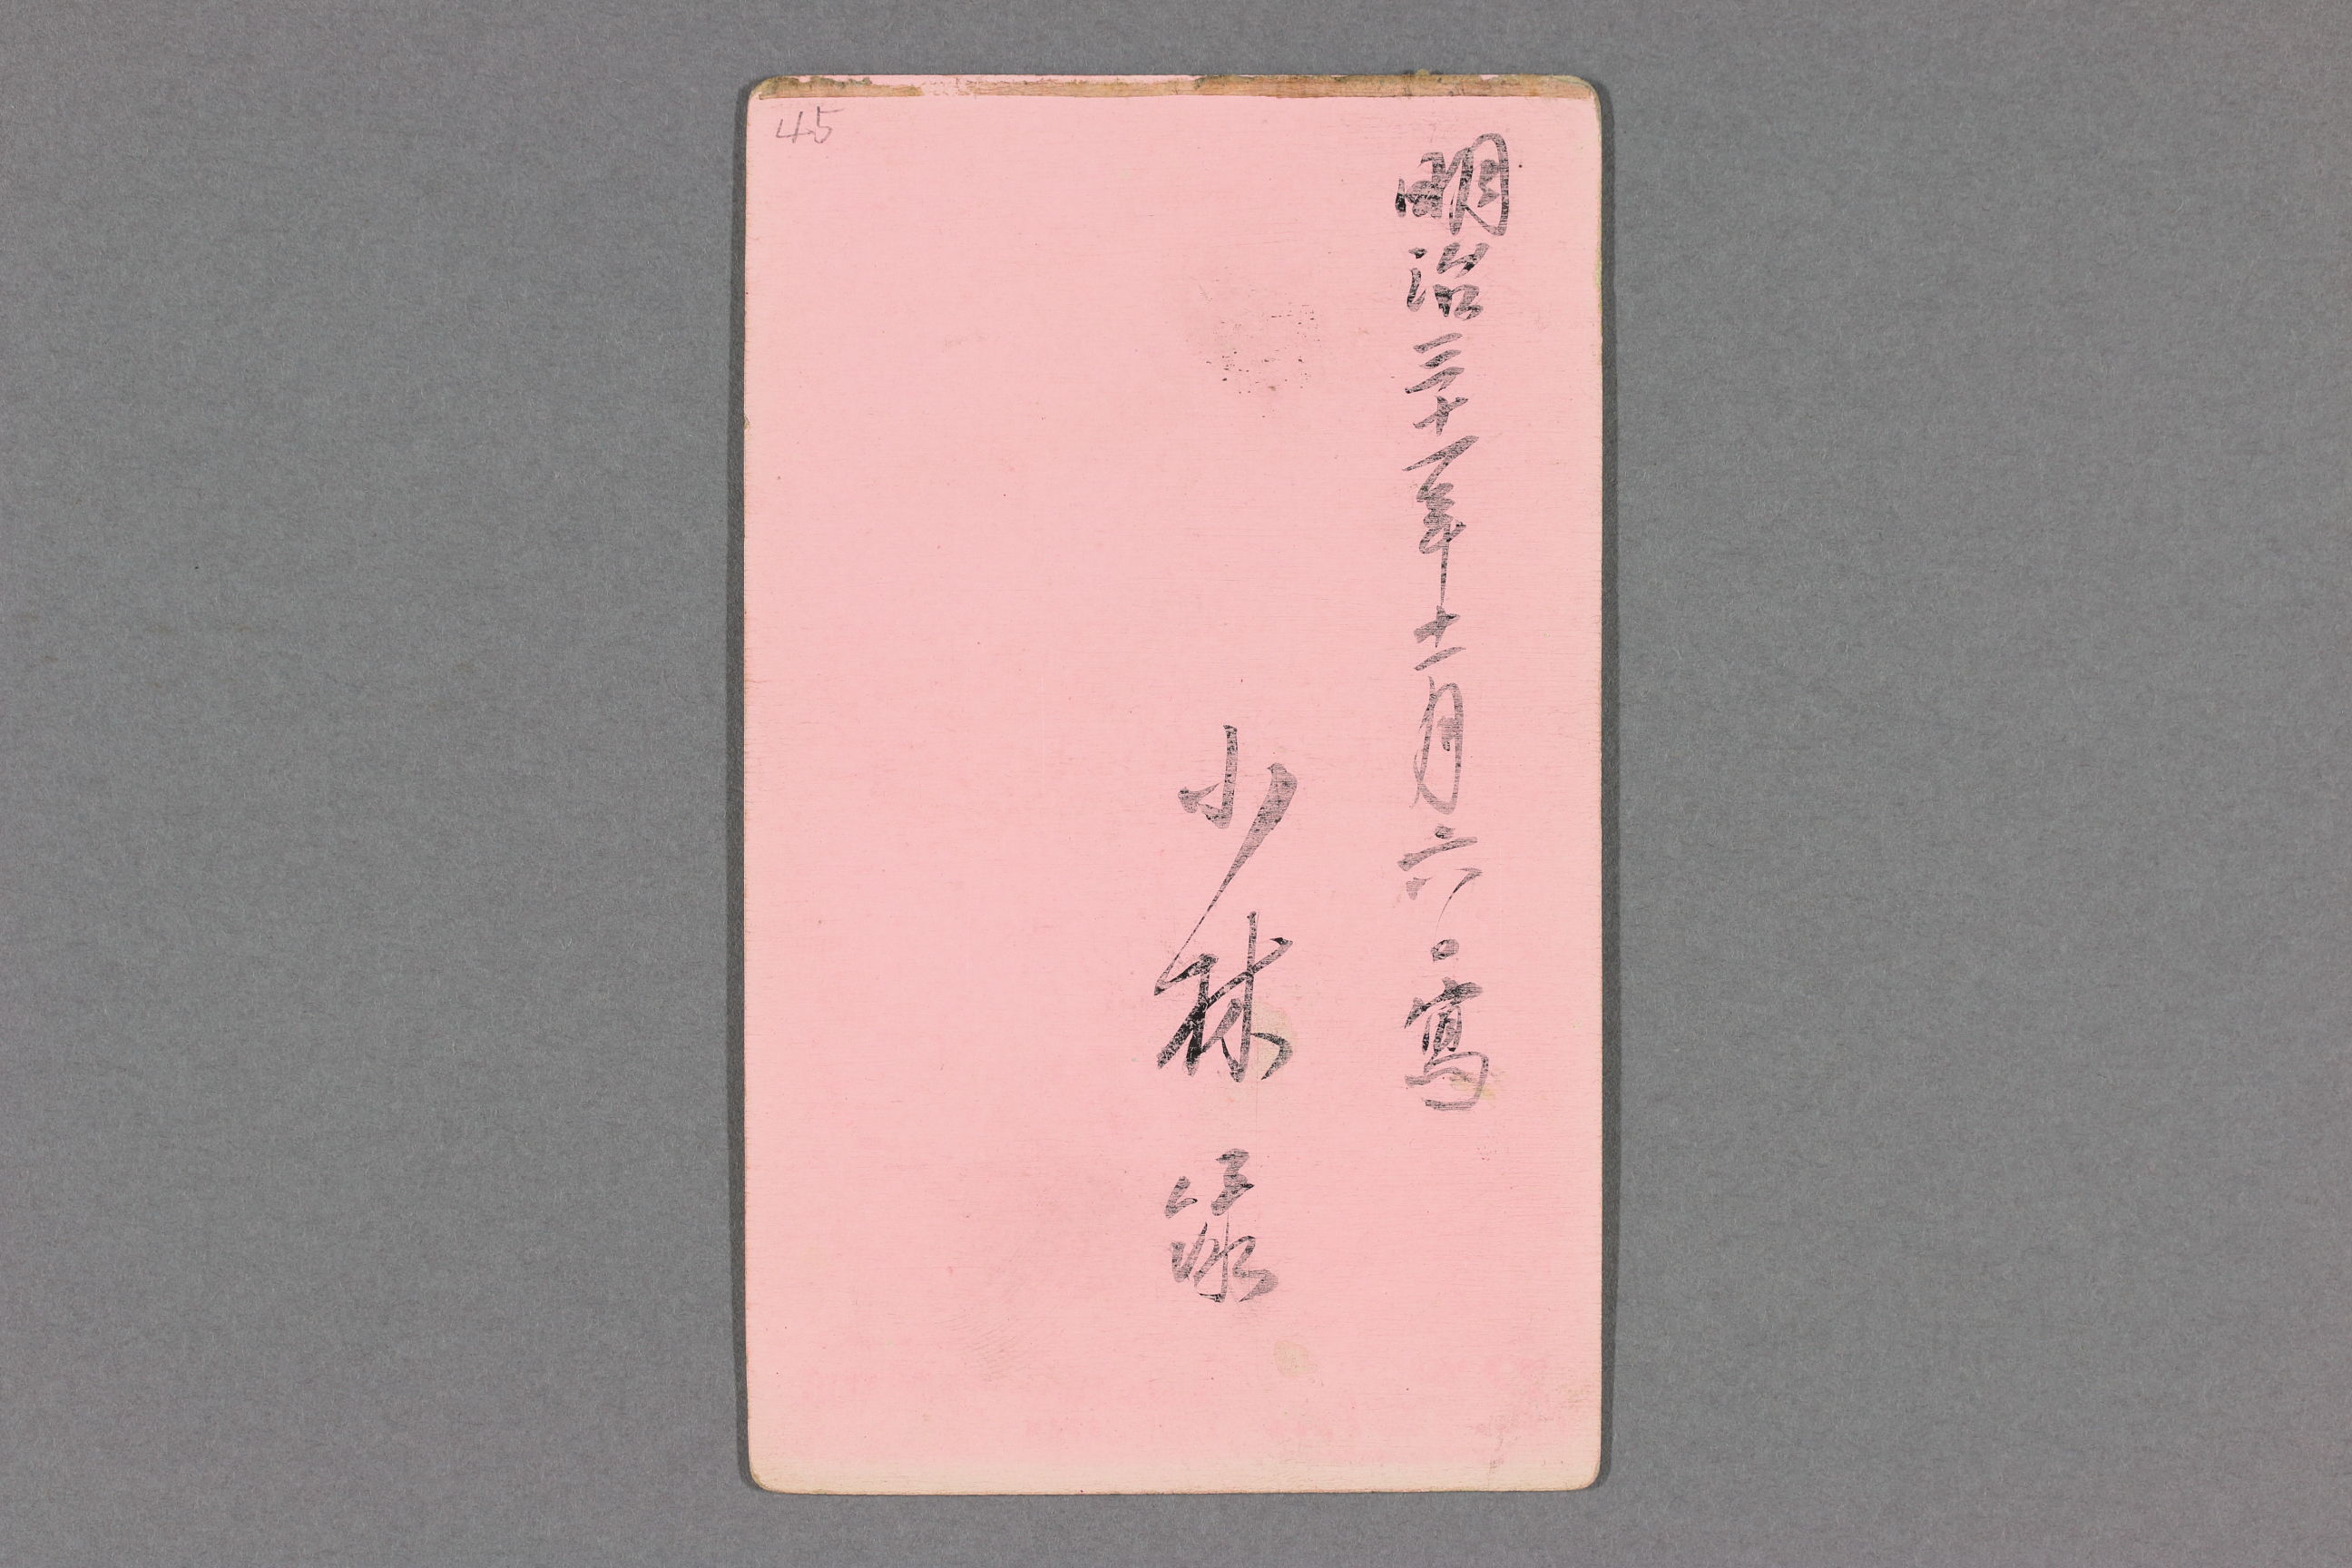 45
明治三十一年十一月六日寫
小林